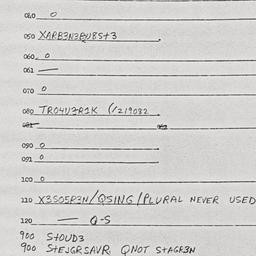 040 0
050 XARB3N3BUBS+3
060 0
061 —
070 0
080 TRO4U3R1K (1219032
081
090 0
091 0
100 0
110 X3S05R3N/QSING/PLURAL NEVER USED
120 — Q-S
900 S+OUD3
900 S+EJGRSAVR QNOT S+AGR3N